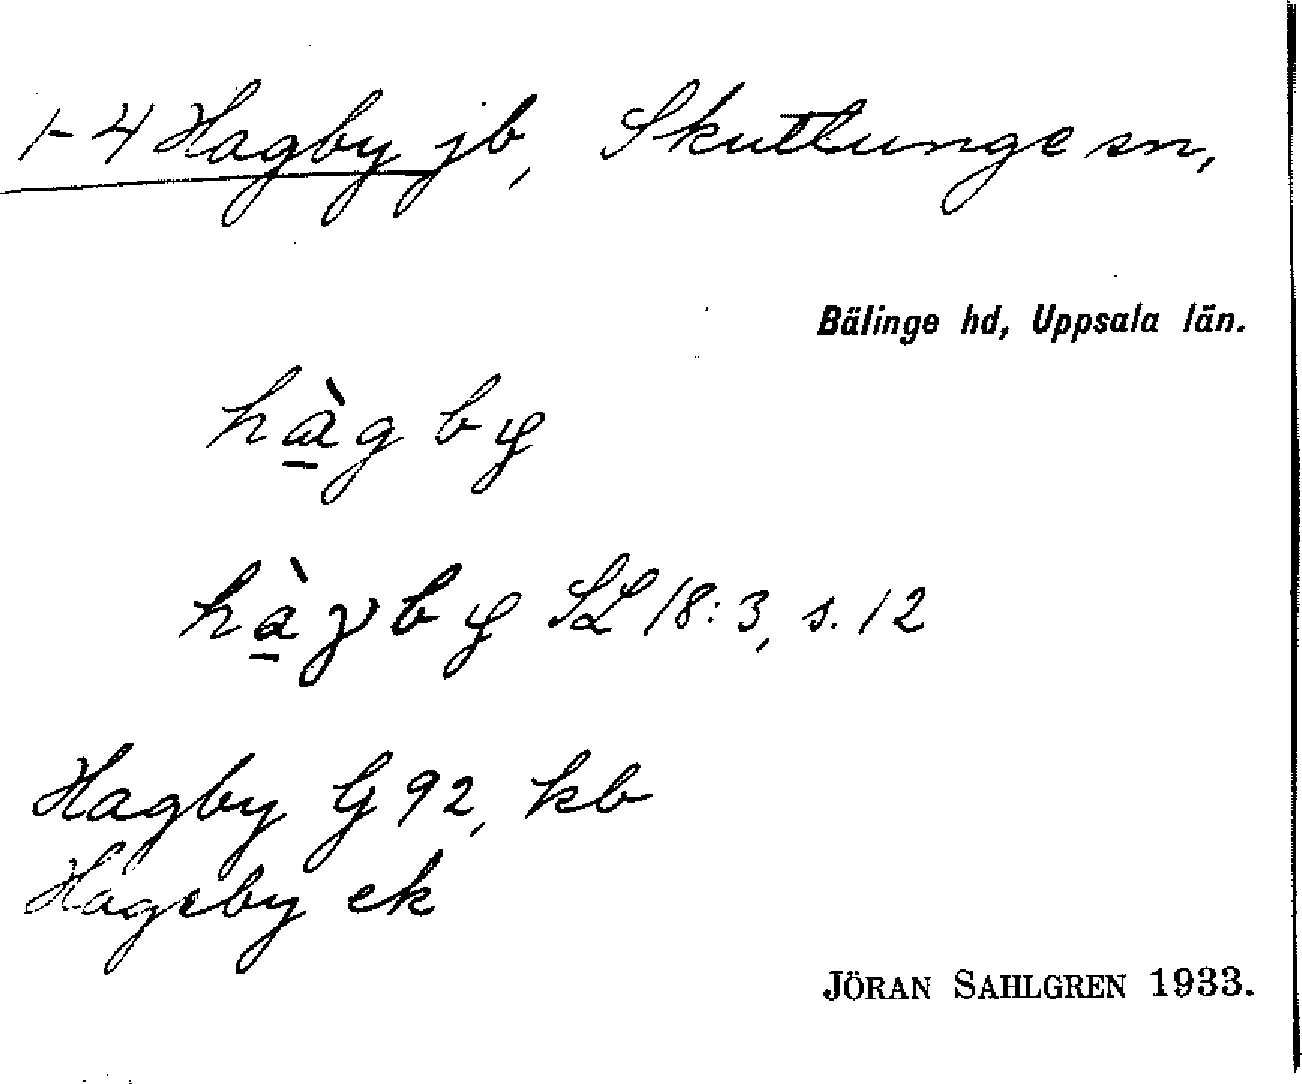 1-4 Hagby jb, Skuttunge sn,
Bälinge hd, Uppsala län.
hà̱gby
hà̱γby SL 18:3, s. 12
Hagby G 92, kb
Hageby ek
JÖRAN SAHLGREN 1933.